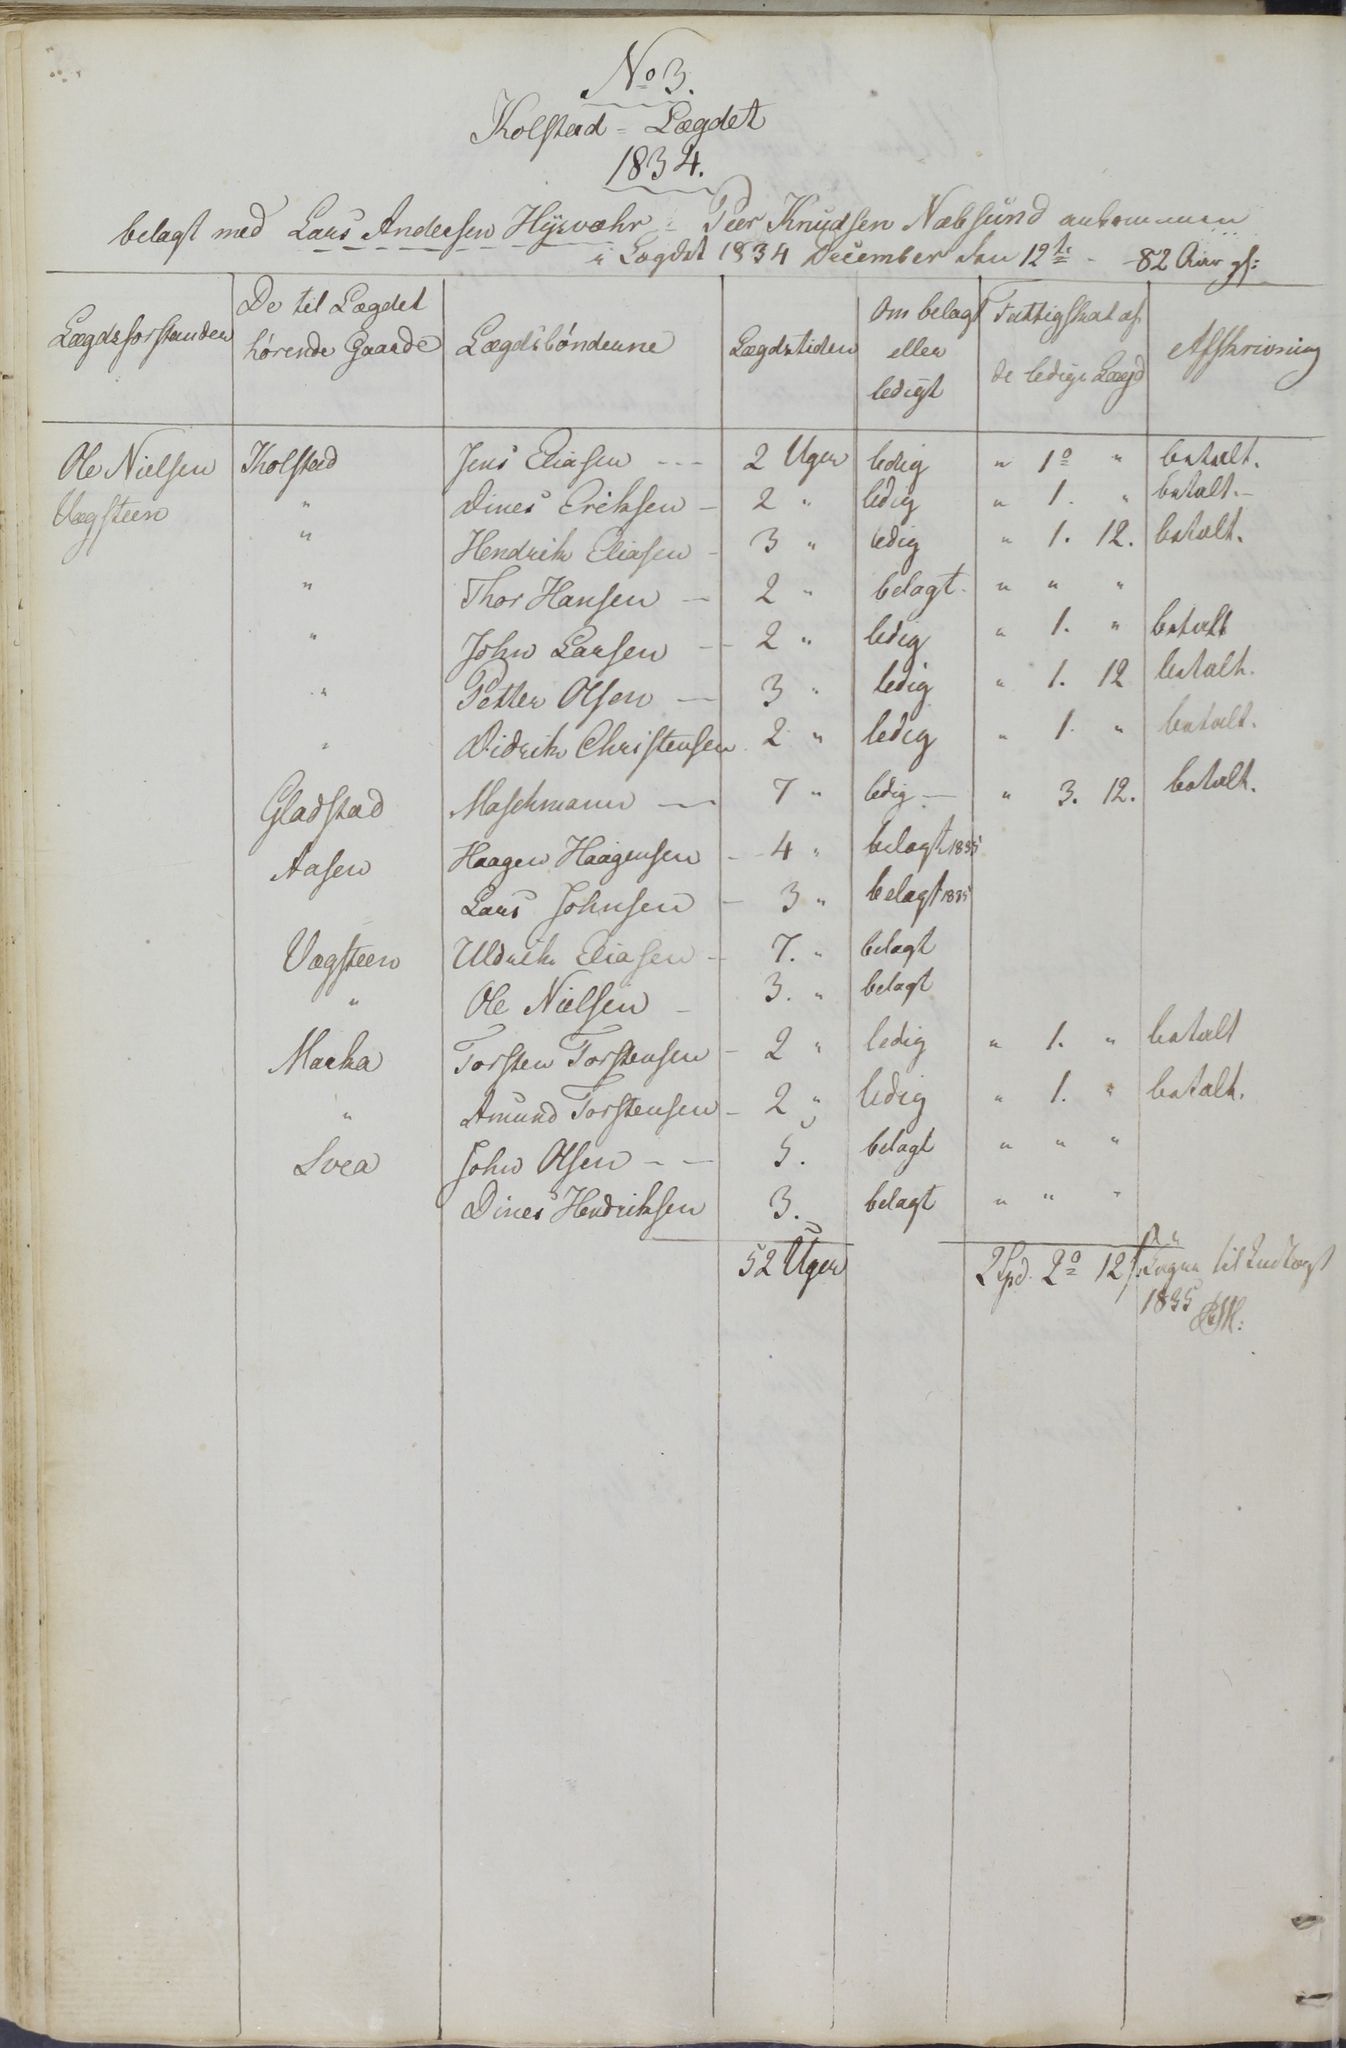 No 3.
Kolstad - Lægdet
1834.
belagt med Lars Andersen Hÿsvæhr - Peer Knudsen Nabsund ankommen
i Lægdet 1834 December den 12te - 82 Aar gl:
Lægdsforstander | De til Lægdet hørende Gaarde | Lægdsbønderne | Lægdstiden | Om belagt eller ledigt | Fattigskat af de ledige Lægd | Afskrivning
Ole Nielsen | Kolstad | Jens Eliasen --- | 2 Uger | ledig | " 1o " | betalt.
Vægsteen | " | Dines Eriksen - | 2 " | ledig | " 1. " | betalt.-
" | Hendrik Eliasen - | 3 " | ledig | " 1. 12. | betalt.
" | Thor Hansen - | 2 " | belagt. | " " "
" | John Larsen - | 2 " | ledig | " 1. " | betalt
" | Petter Olsen - | 3 " | ledig | " 1. 12 | betalt.
" | Didrik Christensen | 2 " | ledig | " 1. " | betalt.
Gladstad | Maschmann - | 7 " | ledig - | " 3. 12. | betalt.
Aasen | Haagen Haagensen - | 4 " | belagt 1835
Lars Johnsen - | 3 " | belagt 1835
Vægsteen | Uldrik Eliasen - | 7. " | belagt
" | Ole Nielsen - | 3. " | belagt
Marka | Torsten Torstensen - | 2 " | ledig | " 1. " | betalt
" | Amund Torstensen - | 2 " | ledig | " 1. " | betalt.
Svea | John Olsen - - | 5. | belagt | " " "
Dines Hendriksen | 3. | belagt | " " "
52 Uger | 2 Spd. 2o 12 s. | til Indtægt
1835